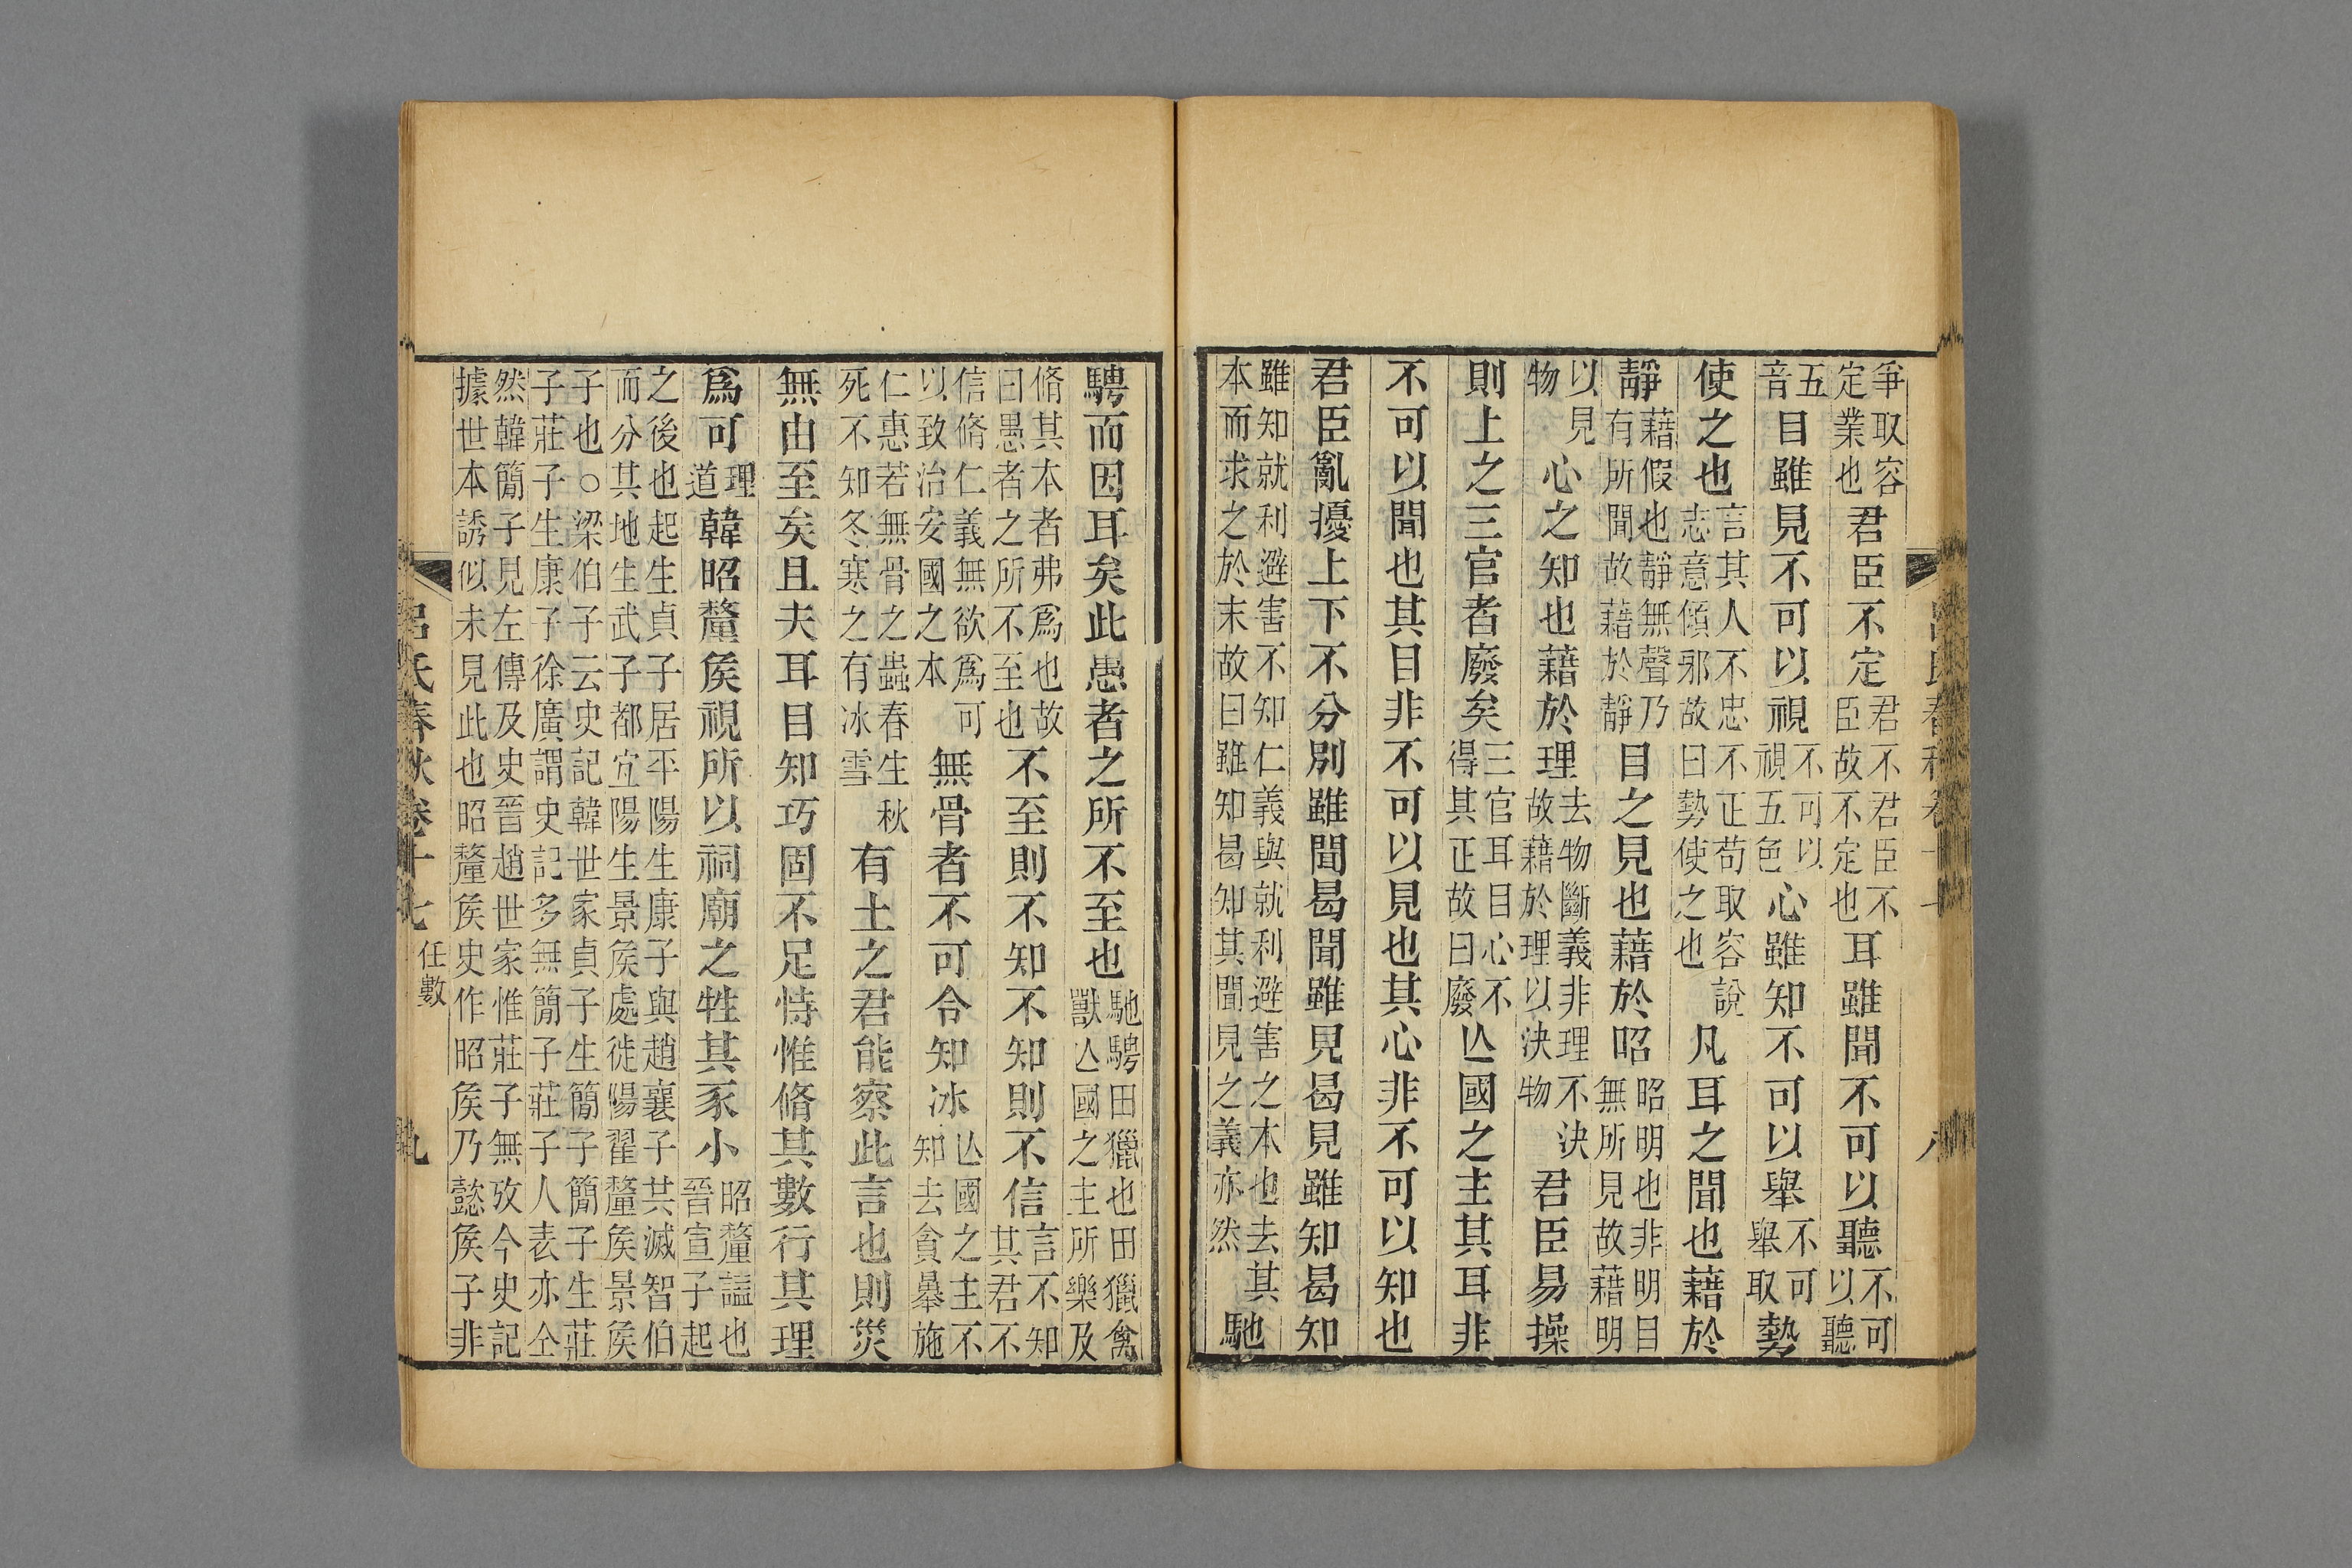 呂氏春秋卷十七 八
爭取容定業也君臣不定君不君臣不臣故不定也耳雖聞不可以聽不可以聽
五音目雖見不可以視不可以視五色心雖知不可以舉不可舉取勢
使之也言其人不忠不正苟取容說志意傾邪故曰勢使之也凡耳之聞也藉於
靜藉假也靜無聲乃有所聞故藉於靜目之見也藉於昭昭明也非明目無所見故藉明
以見物心之知也藉於理去物斷義非理不決故藉於理以決物君臣易操
則上之三官者廢矣三官耳目心不得其正故曰廢亾國之主其耳非
不可以聞也其目非不可以見也其心非不可以知也
君臣亂擾上下不分別雖聞曷聞雖見曷見雖知曷知
雖知就利避害不知仁義與就利避害之本也去其本而求之於末故曰雖知曷知其聞見之義亦然馳
騁而因耳矣此愚者之所不至也馳騁田獵也田獵禽獸亾國之主所樂及
脩其本者弗爲也故曰愚者之所不至也不至則不知不知則不信言不知其君不
信脩仁義無欲爲可以致治安國之本無骨者不可令知冰亾國之主不知去貪暴施
仁惠若無骨之蟲春生秋死不知冬寒之有冰雪有土之君能察此言也則災
無由至矣且夫耳目知巧固不足恃惟脩其數行其理
爲可理道韓昭釐矦視所以祠廟之牲其豕小昭釐諡也晉宣子起
之後也起生貞子居平陽生康子與趙襄子共滅智伯
而分其地生武子都宜陽生景矦處徙陽翟釐矦景矦
子也○梁伯子云史記韓世家貞子生簡子簡子生莊
子莊子生康子徐廣謂史記多無簡子莊子人表亦仝
然韓簡子見左傳及史晉趙世家惟莊子無攷今史記
據世本誘似未見此也昭釐矦史作昭矦乃懿矦子非
呂氏春秋卷十七 任數 九